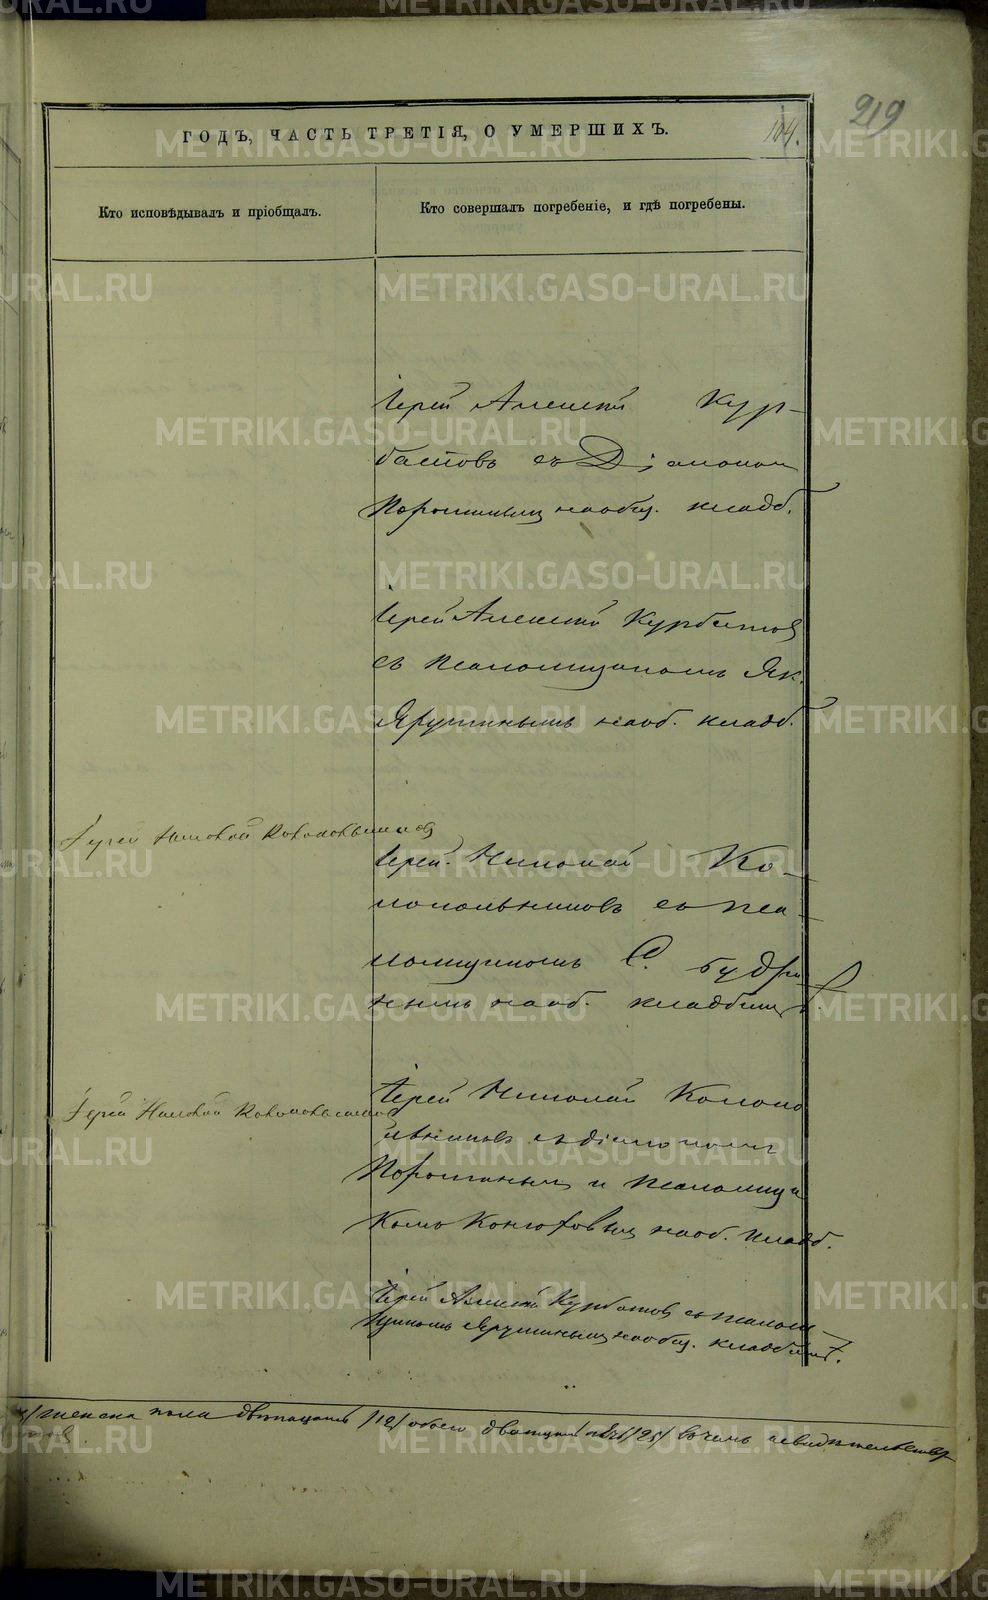 219
ГОДЪ, ЧАСТЬ ТРЕТІЯ, О УМЕРШИХЪ.
104.
Кто исповѣдывалъ и пріобщалъ.
Кто совершалъ погребеніе, и гдѣ погребены.
Іерей Алексѣй Кур-
батовъ съ Діакономъ
Порошинымъ на общ. кладб.
Іерей Алексѣй Курбатовъ
съ псаломщикомъ Як.
Ярушинымъ на об. кладб.
Іерей Николай Колокольниковъ
Іерей Николай Ко-
локольниковъ съ пса-
ломщикомъ С. Будри-
нымъ на об. кладбищѣ.
Іерей Николай Колокольниковъ
Іерей Николай Колоко
льниковъ съ діакономъ
Порошинымъ и псаломщи
комъ Конюховымъ на об. кладб.
Іерей Алексѣй Курбатовъ съ псалом-
щикомъ Ярушинымъ на общ. кладбищѣ.
женска пола двѣнадцать /12/ обоего двадцать пять /25/ въ чемъ и свидѣтельствуемъ
METRIKI.GASO-URAL.RU